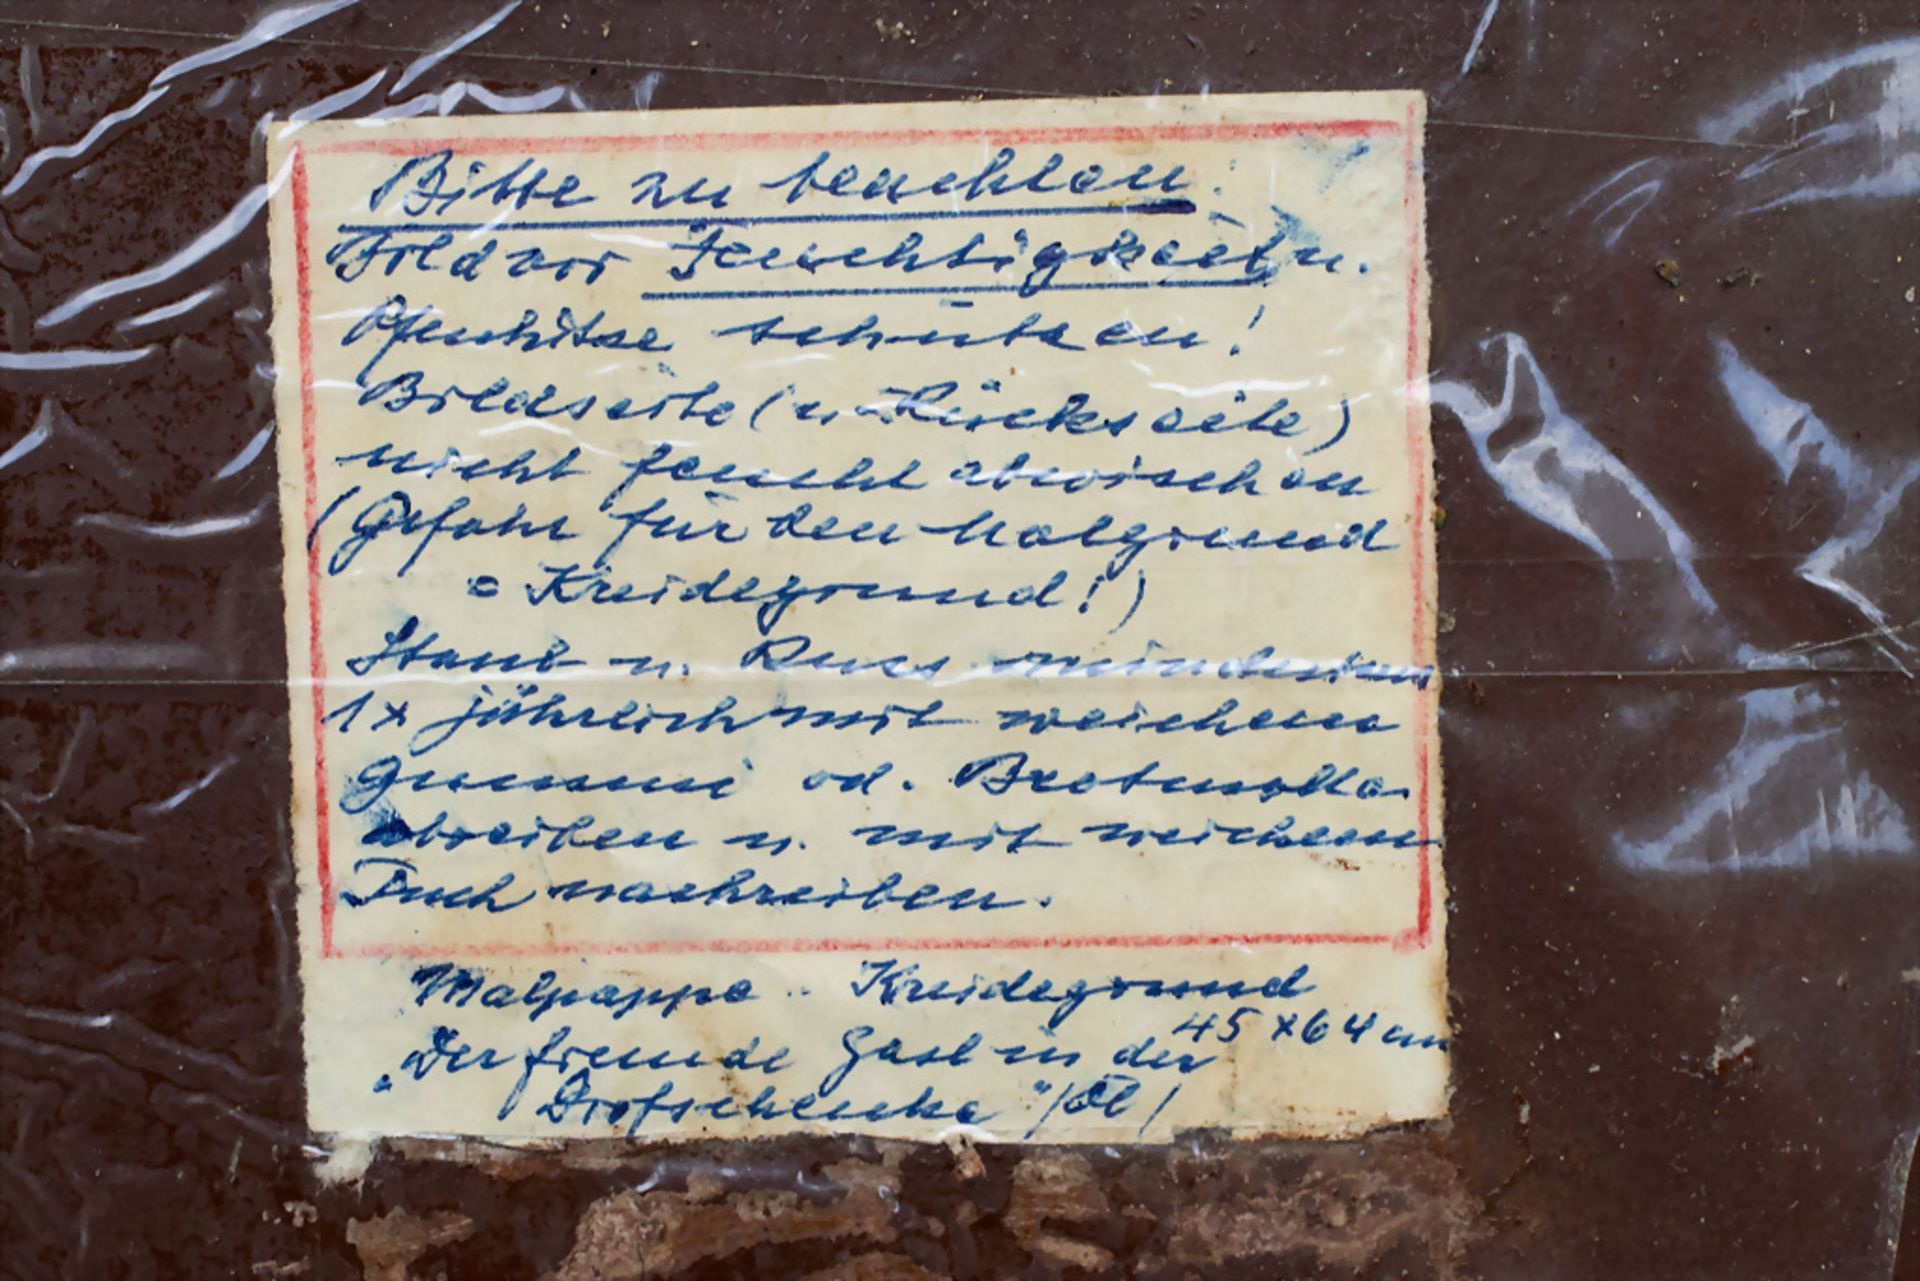 Bitte zu beachten:
Bild vor Feuchtigkeit u.
Ofenhitze schützen!
Bildseite (u. Rückseite)
nicht feucht abwischen
(Gefahr für den Malgrund
= Kreidegrund!)
Staub u. Russ mindestens
1x jährlich mit weichem
Gummi od. Brotmolle
abreiben u. mit weichem
Tuch nachreiben.
Malpappe - Kreidegrund
45 x 64 cm
"Der fremde Gast in der
Dorfschenke" /Öl/